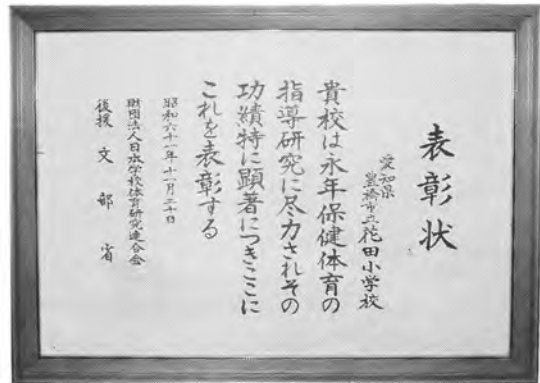 表彰状
愛知県
豊橋市立花田小学校
貴校は永年保健体育の
指導研究に尽力されその
功績特に顕著につきここに
これを表彰する
昭和六十一年十一月二十日
財団法人日本学校体育研究連合会
後援 文部省